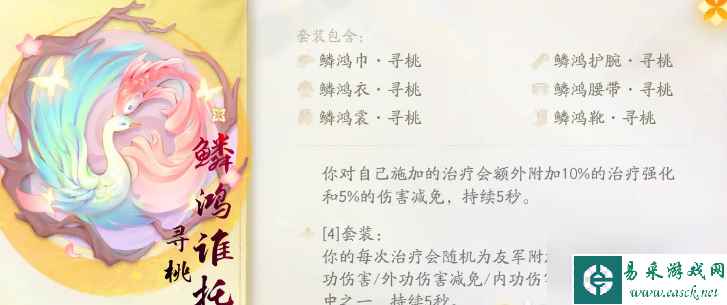 鳞鸿谁托
寻桃
套装包含：
鳞鸿巾·寻桃
鳞鸿护腕·寻桃
鳞鸿衣·寻桃
鳞鸿腰带·寻桃
鳞鸿裳·寻桃
鳞鸿靴·寻桃
你对自己施加的治疗会额外附加10%的治疗强化
和5%的伤害减免，持续5秒。
[4]套装：
你的每次治疗会随机为友军附
功伤害/外功伤害减免/内功伤
中之一，持续5秒。
易采游戏网
www.easck.net